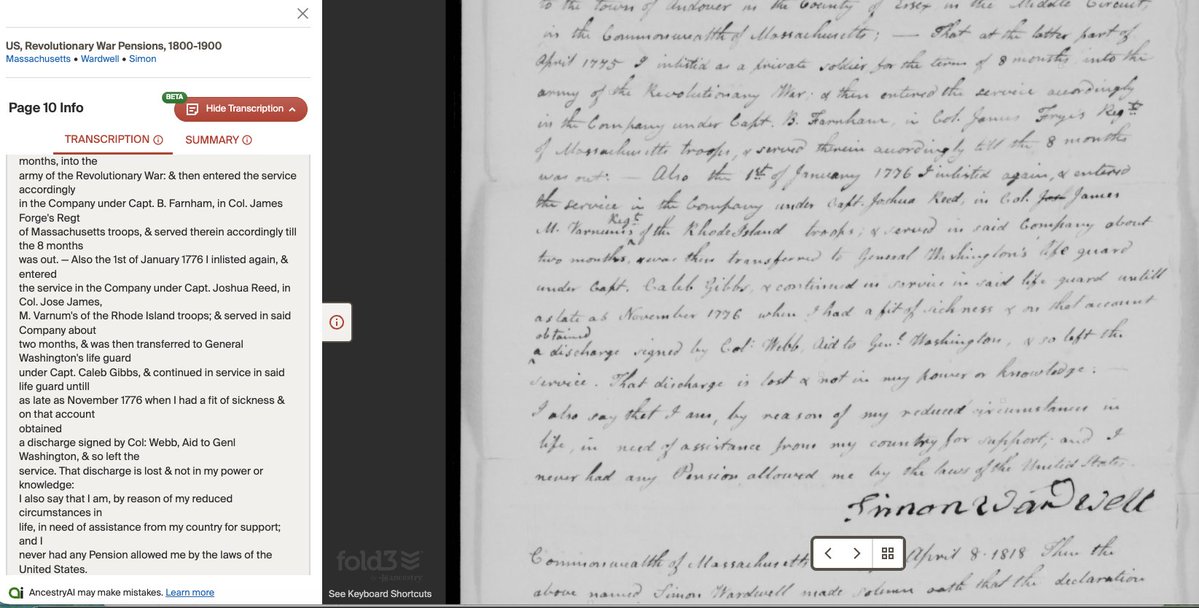 US, Revolutionary War Pensions, 1800-1900
Massachusetts • Wardwell • Simon
Page 10 Info
BETA
Hide Transcription
TRANSCRIPTION
SUMMARY
months, into the
army of the Revolutionary War: & then entered the service
accordingly
in the Company under Capt. B. Farnham, in Col. James
Forge's Regt
of Massachusetts troops, & served therein accordingly till
the 8 months
was out. — Also the 1st of January 1776 I inlisted again, &
entered
the service in the Company under Capt. Joshua Reed, in
Col. Jose James,
M. Varnum's of the Rhode Island troops; & served in said
Company about
two months, & was then transferred to General
Washington's life guard
under Capt. Caleb Gibbs, & continued in service in said
life guard untill
as late as November 1776 when I had a fit of sickness &
on that account
obtained
a discharge signed by Col: Webb, Aid to Genl
Washington, & so left the
service. That discharge is lost & not in my power or
knowledge:
I also say that I am, by reason of my reduced
circumstances in
life, in need of assistance from my country for support;
and I
never had any Pension allowed me by the laws of the
United States.
AncestryAI may make mistakes. Learn more
fold3
by ancestry
See Keyboard Shortcuts
to the town of Andover in the County of Essex in the Middle Circuit,
in the Commonwealth of Massachusetts; — That at the latter part of
April 1775 I inlisted as a private soldier for the term of 8 months into the
army of the Revolutionary War: & then entered the service accordingly
in the Company under Capt. B. Farnham, in Col. James Frye's Regt
of Massachusetts troops, & served therein accordingly till the 8 months
was out: — Also the 1st of January 1776 I inlisted again, & entered
the service in the Company under Capt. Joshua Reed, in Col. James
M. Varnum's Regt of the Rhode Island troops; & served in said Company about
two months, & was then transferred to General Washington's life guard
under Capt. Caleb Gibbs, & continued in service in said life guard untill
as late as November 1776 when I had a fit of sickness & on that account
obtained
a discharge signed by Col: Webb, Aid to Genl Washington, & so left the
service. That discharge is lost & not in my power or knowledge:
I also say that I am, by reason of my reduced circumstances in
life, in need of assistance from my country for support; and I
never had any Pension allowed me by the laws of the United States.
Simon Wardwell
Commonwealth of Massachusetts April 8. 1818 Then the
above named Simon Wardwell made solemn oath that the declaration